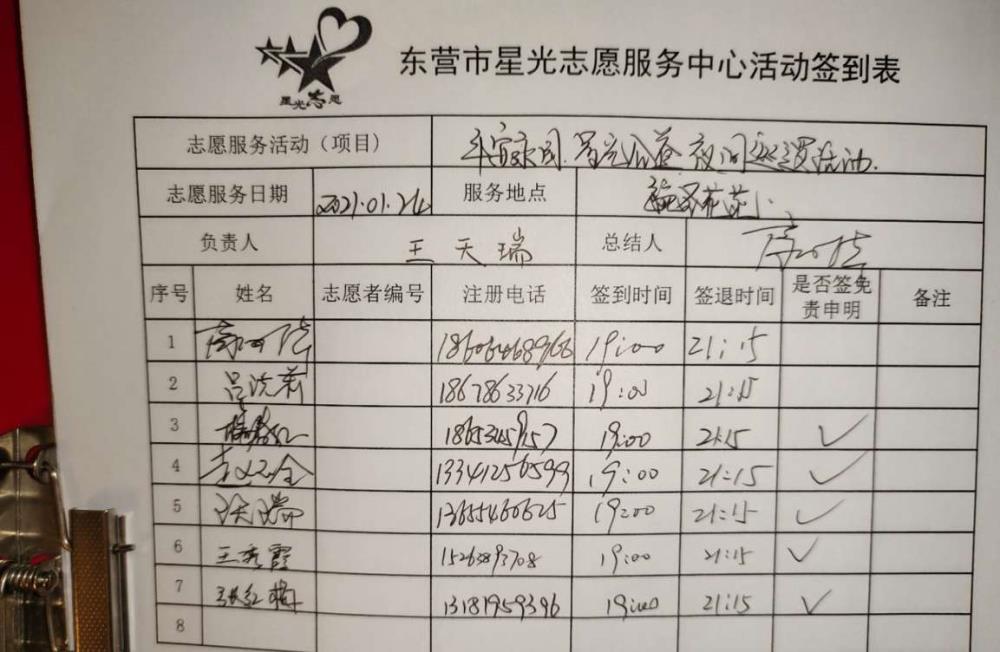 星光志愿
东营市星光志愿服务中心活动签到表
志愿服务活动（项目） 平安东凤 星光 夜间巡逻活动.
志愿服务日期 2021.01.24 服务地点
负责人 王天瑞 总结人
序号 姓名 志愿者编号 注册电话 签到时间 签退时间 是否签免责申明 备注
1 18606468966 19:00 21:15
2 18678633716 19:00 21:15
3 19:00 21:15 ✓
4 13341256599 19:00 21:15 ✓
5 13655460625 19:00 21:15 ✓
6 王秀霞 15263893708 19:00 21:15 ✓
7 张红梅 13181959396 19:00 21:15 ✓
8